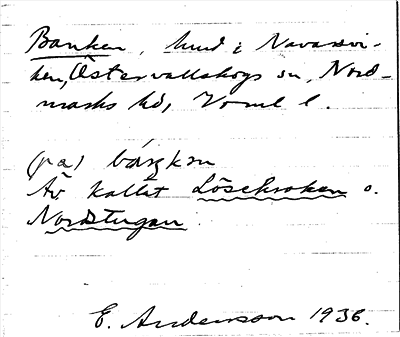 Banken, hmd i Navarsvi-
ken, Östervallskogs sn, Nord-
marks hd, Vrml l.
(pa) báŋkɛn
Äv kallat Löschroken o.
Nordstugan.
E. Andersson 1936.